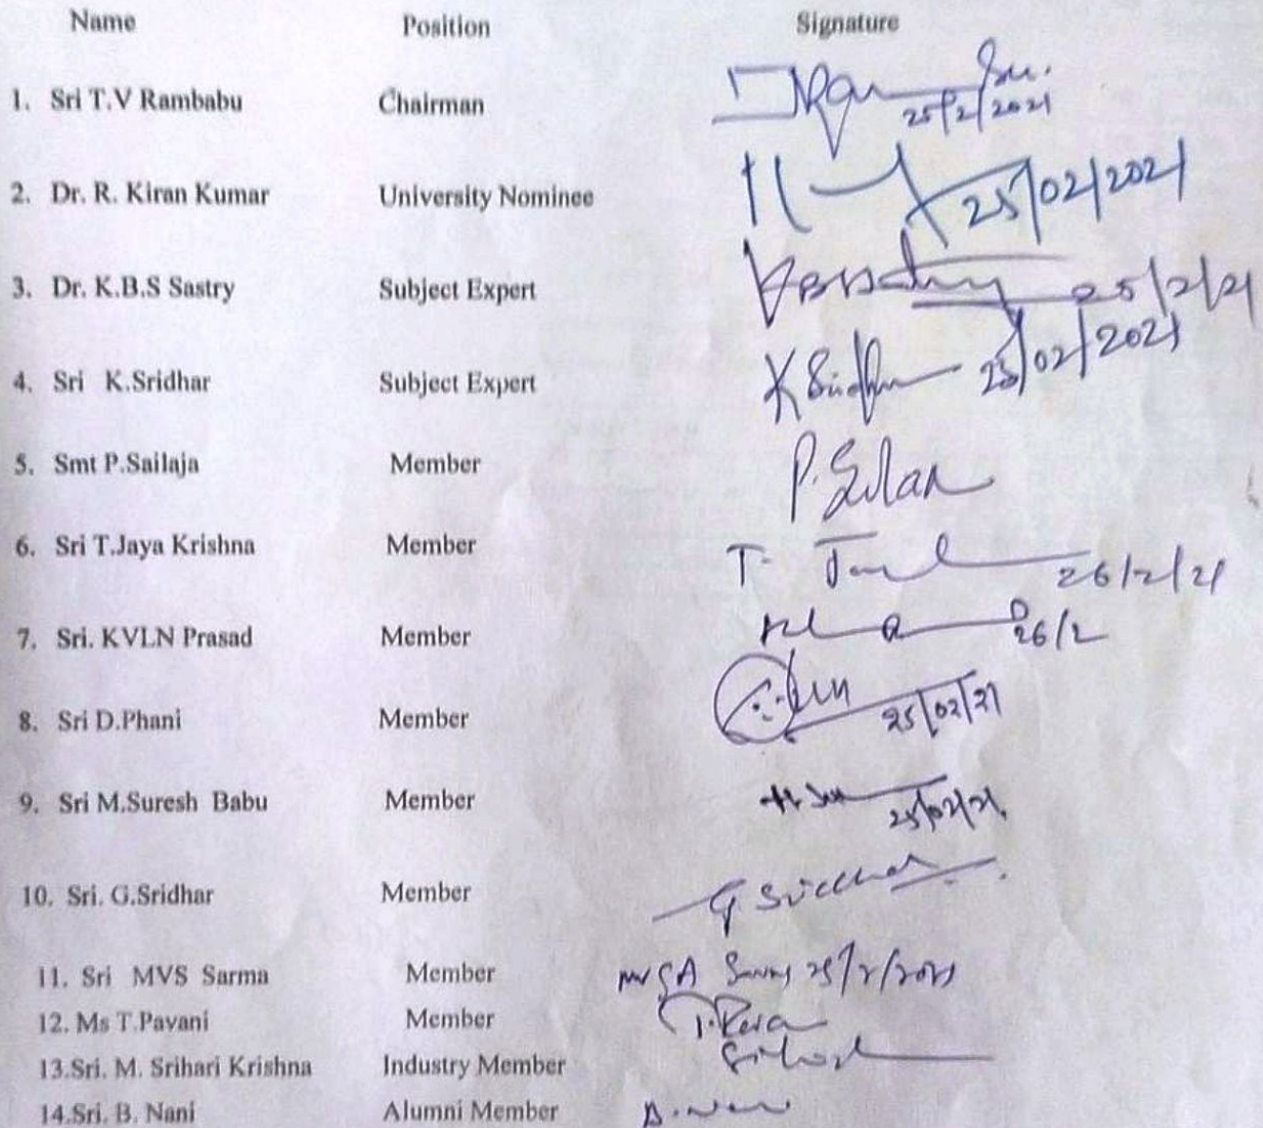 Name Position Signature
1. Sri T.V Rambabu Chairman 25/2/2021
2. Dr. R. Kiran Kumar University Nominee 25/02/2021
3. Dr. K.B.S Sastry Subject Expert 25/2/21
4. Sri K.Sridhar Subject Expert K Sridhar 25/02/2021
5. Smt P.Sailaja Member
6. Sri T.Jaya Krishna Member T. 26/2/21
7. Sri. KVLN Prasad Member 26/2
8. Sri D.Phani Member 25/02/21
9. Sri M.Suresh Babu Member 25/02/21
10. Sri. G.Sridhar Member G Sridhar
11. Sri MVS Sarma Member 25/2/2021
12. Ms T.Pavani Member
13.Sri. M. Srihari Krishna Industry Member
14.Sri. B. Nani Alumni Member